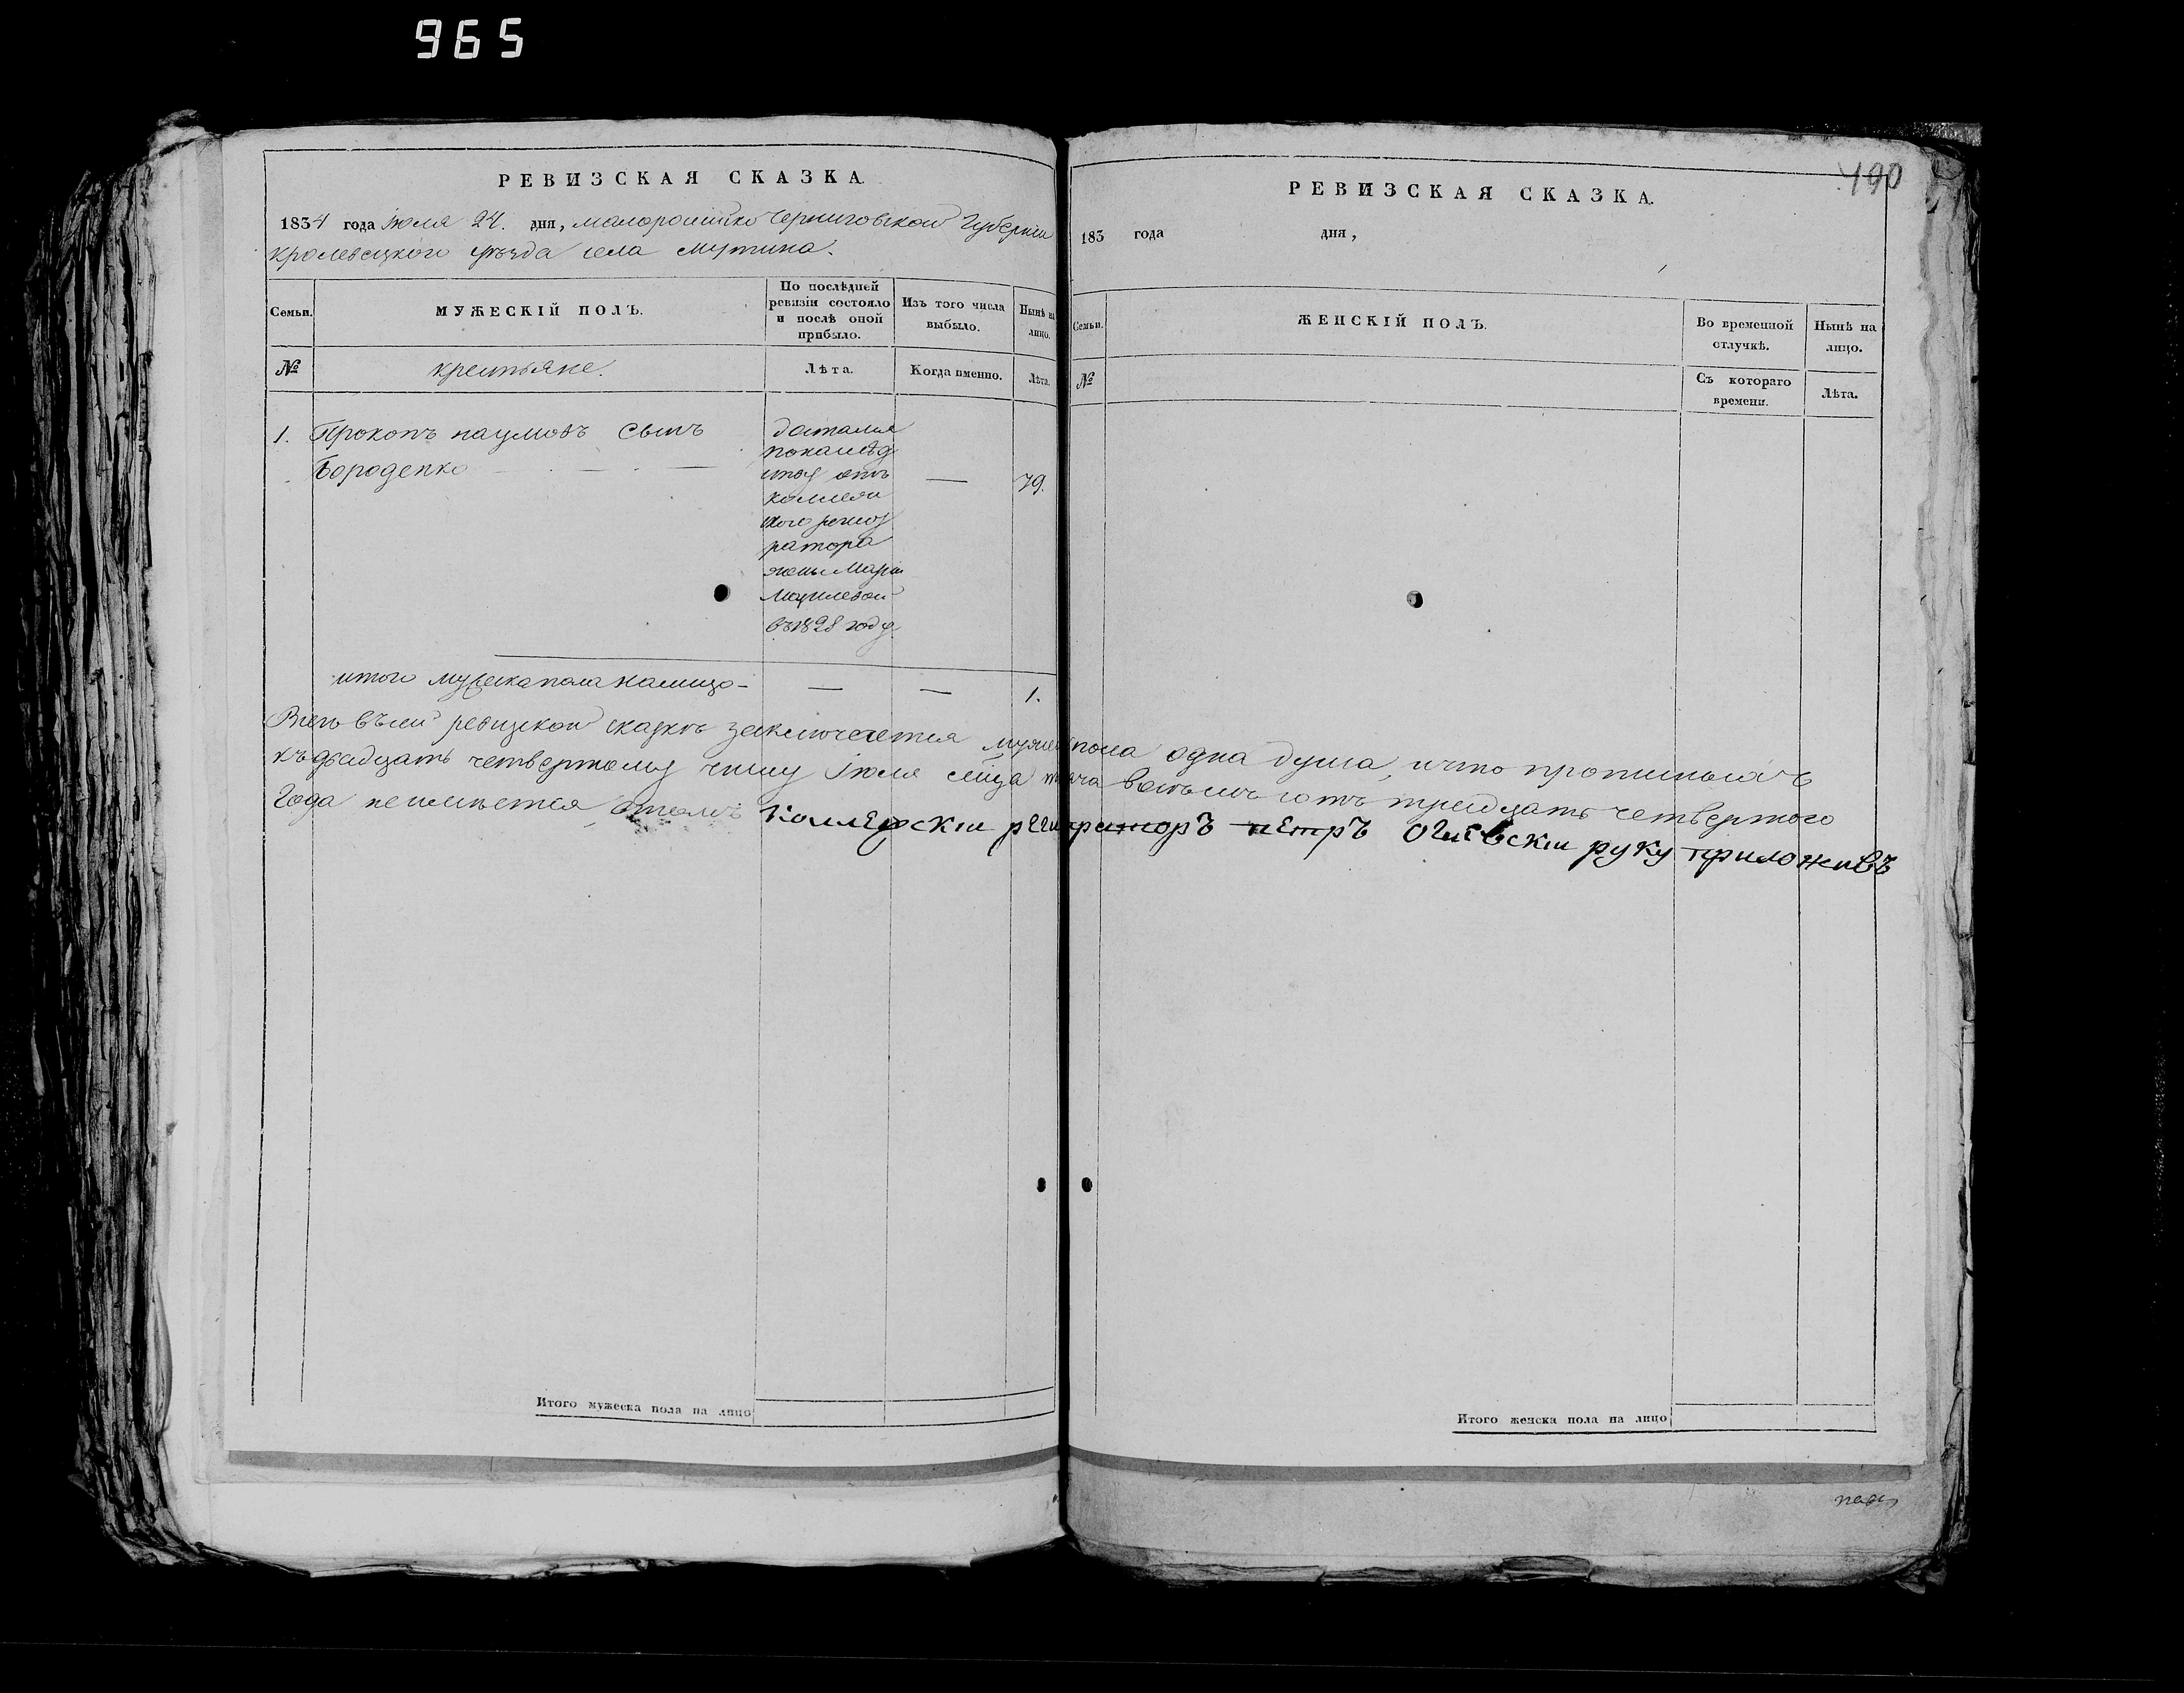 965
РЕВИЗСКАЯ СКАЗКА.
1834 года Июля 24. дня, малоросийско Черниговской Губернии
кролевецкого уезда села Мутина.
Семьи.
МУЖЕСКІЙ ПОЛЪ.
По послѣдней
ревизіи состояло
и послѣ оной
прибыло.
Изъ того числа
выбыло.
Нынѣ на
лицо.
№
крестьяне.
Лѣта.
Когда именно.
Лѣта.
1. Прокопъ наумовъ сынъ
Бороденко
достался
понаслѣд
ству отъ
колежс
кого регист
ратора
жены Маріи
въ 1828 году.
— 79.
итого мужеска пола налицо — — — 1.
Всего въ сей ревизской сказкѣ заключается мужеска пола одна душа, и что прописныхъ
къ двадцать четвертому числу Іюля мѣца тысяча восемъ сотъ тридцать четвертого
Года неимѣется, втомъ колежскіи регистраторъ петръ Огиевскіи руку приложивъ
Итого мужеска пола на лицо
490
РЕВИЗСКАЯ СКАЗКА.
183 года дня,
Семьи.
ЖЕНСКІЙ ПОЛЪ.
Во временной
отлучкѣ.
Нынѣ на
лицо.
№
Съ котораго
времени.
Лѣта.
Итого женска пола на лицо